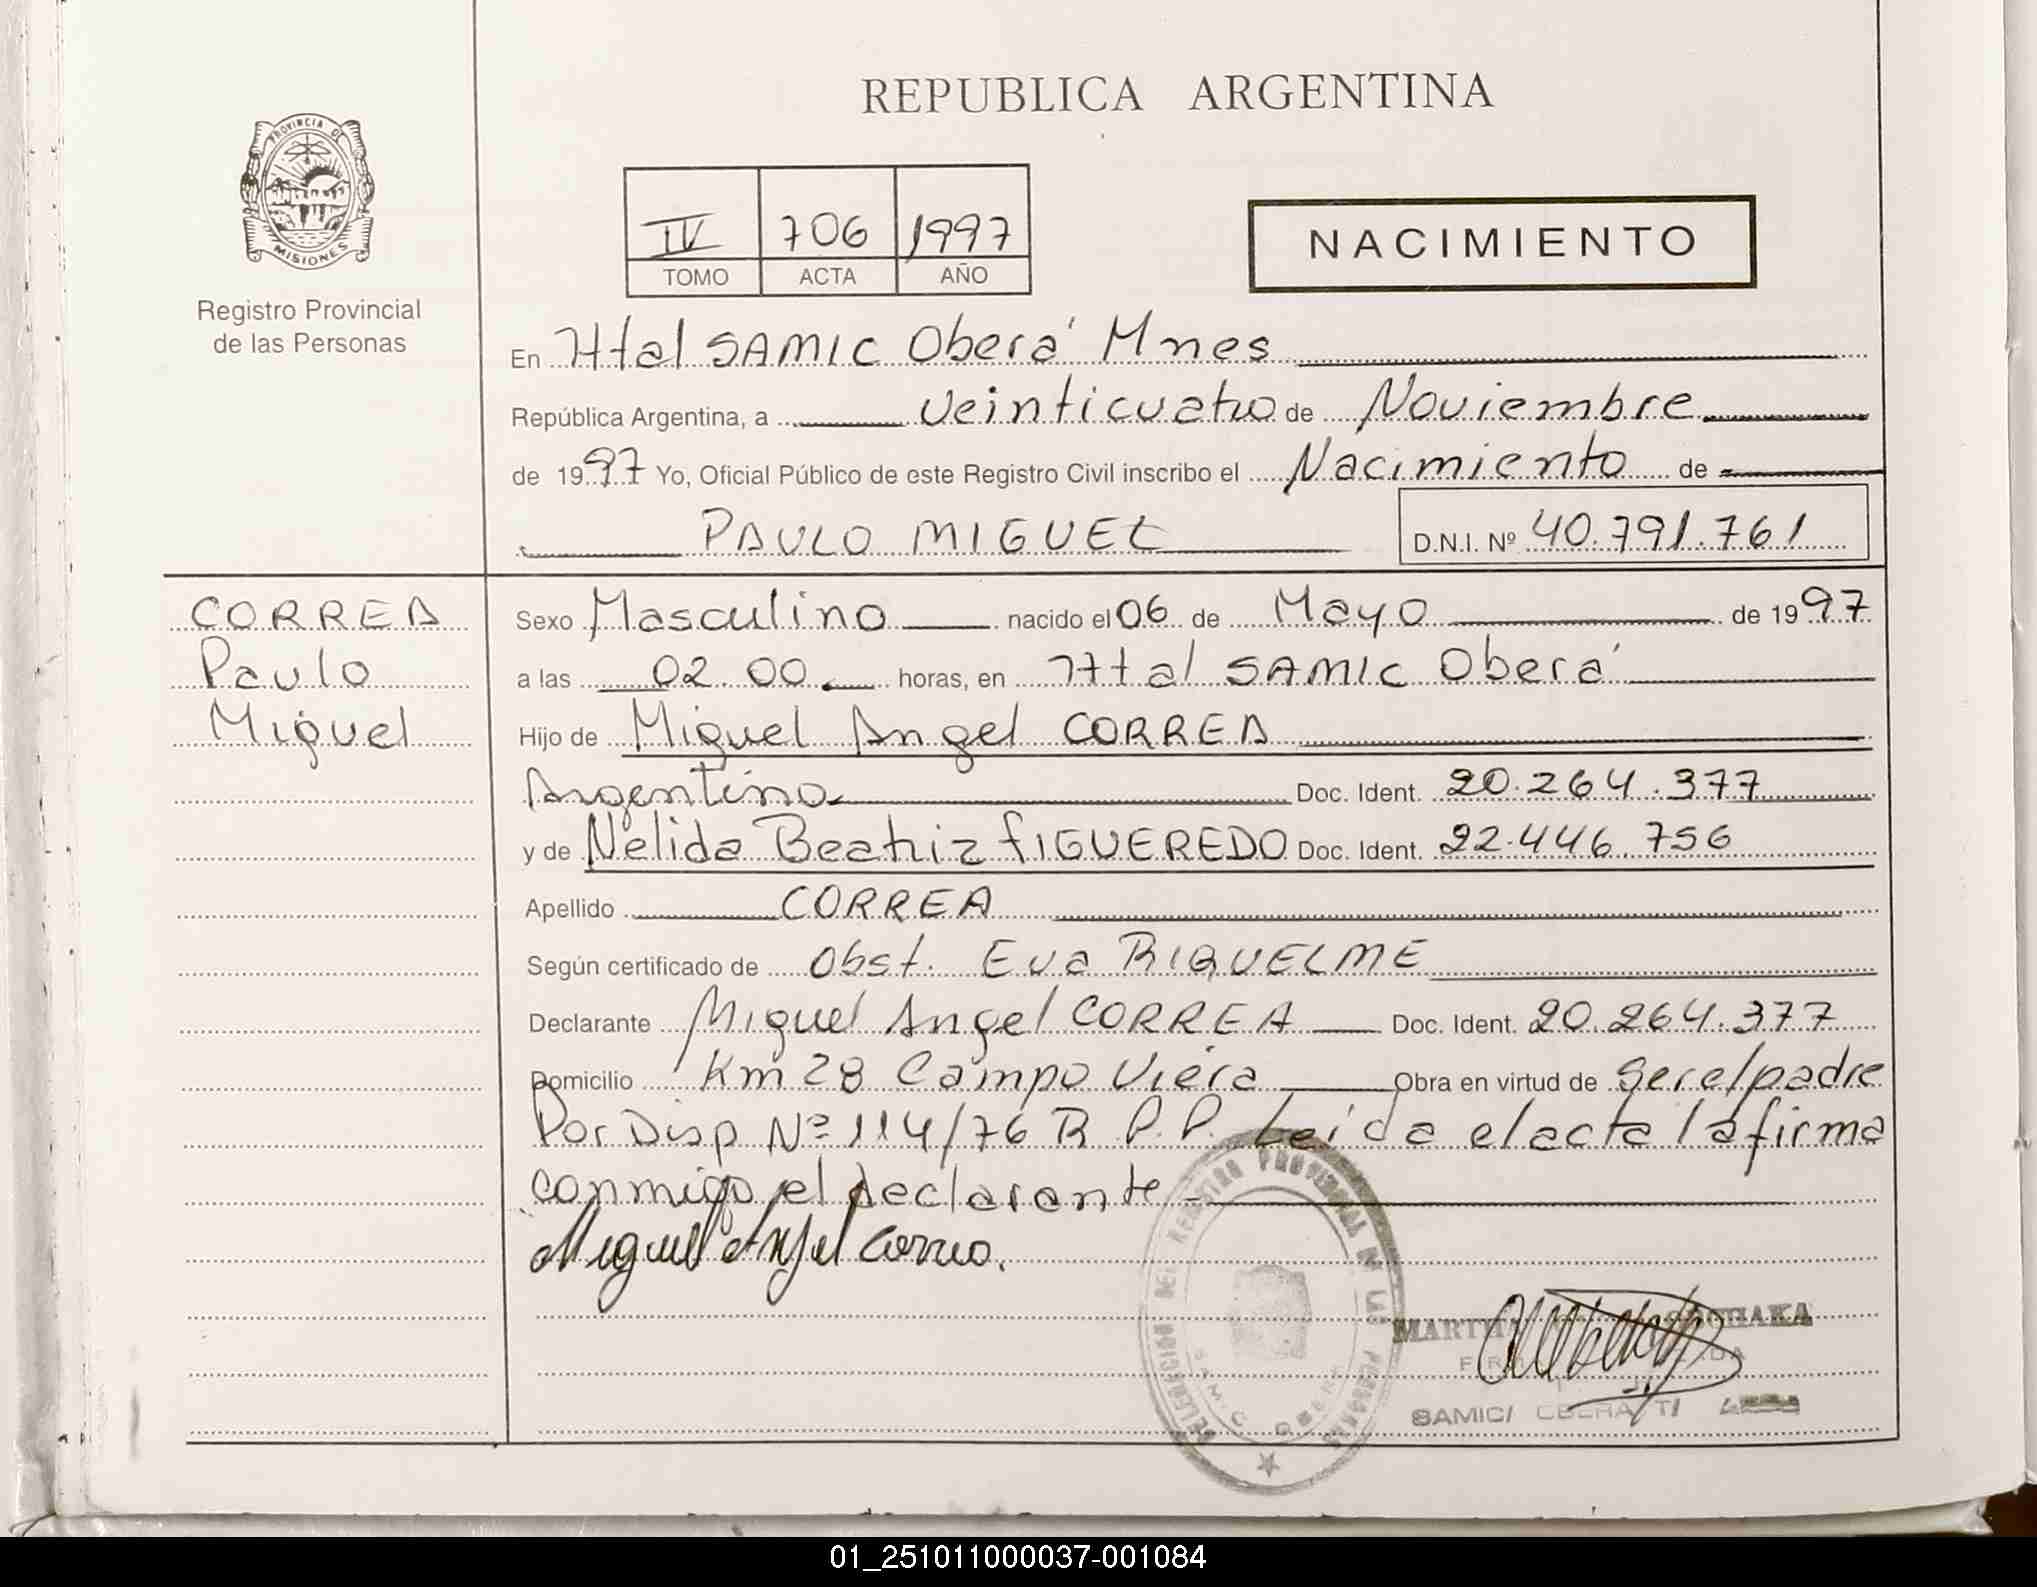 REPUBLICA ARGENTINA
PROVINCIA DE
MISIONES
Registro Provincial
de las Personas
IV 706 1997
TOMO ACTA AÑO
NACIMIENTO
En Httal SAMIC Oberá Mnes
República Argentina, a veinticuatro de Noviembre
de 1997 Yo, Oficial Público de este Registro Civil inscribo el Nacimiento de
PAULO MIGUEL D.N.I. Nº 40.791.761
CORREA
Paulo
Miguel
Sexo Masculino nacido el 06 de Mayo de 1997
a las 02.00 horas, en Httal SAMIC Oberá
Hijo de Miguel Angel CORREA
Argentino Doc. Ident. 20.264.377
y de Nelida Beatriz FIGUEREDO Doc. Ident. 22.446.756
Apellido CORREA
Según certificado de Obst. Eva RIQUELME
Declarante Miguel Angel CORREA Doc. Ident. 20.264.377
Domicilio Km 28 Campo Viera Obra en virtud de ser el padre
Por Disp Nº 114/76 R.P.P. Leída el acta la firma
conmigo el declarante
Miguel Angel Correa.
DELEGACION DEL REGISTRO PROVINCIAL DE LAS PERSONAS
SAMIC OBERA
MARTHA
SAMIC OBERA
01_251011000037-001084